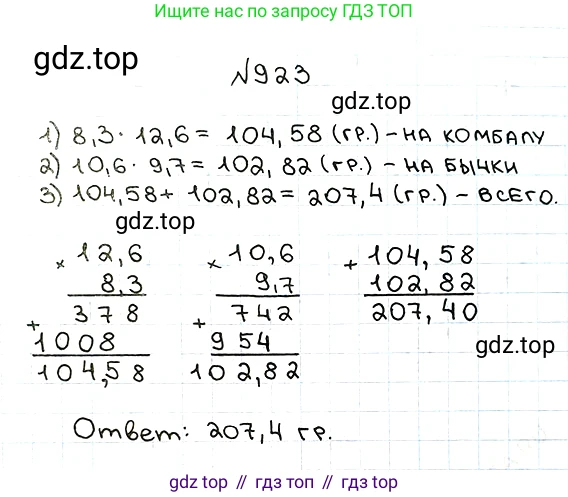 Ищите нас по запросу ГДЗ ТОП
gdz.top
№923
gdz.top
1) 8,3 · 12,6 = 104,58 (гр.) - на комбалу
2) 10,6 · 9,7 = 102,82 (гр.) - на бычки
3) 104,58 + 102,82 = 207,4 (гр.) - всего.
gdz.top
× 12,6 × 10,6 + 104,58
8,3 9,7 102,82
378 742 207,40
+ +
1008 954
gdz.top
104,58 102,82
Ответ: 207,4 гр.
gdz.top // gdz.top // gdz.top